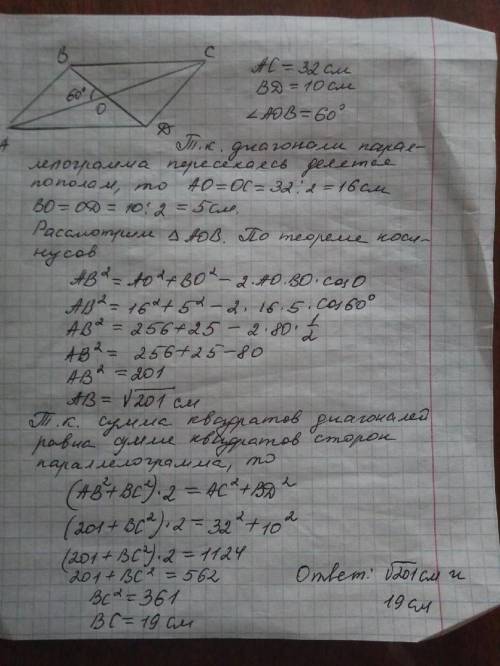 B
C
60°
O
A
D
AC = 32 см
BD = 10 см
∠AOB = 60°
Т.к. диагонали парал-
лелограмма пересекаясь делятся
пополам, то AO = OC = 32 : 2 = 16 см
BO = OD = 10 : 2 = 5 см.
Рассмотрим △ AOB. По теореме коси-
нусов
AB² = AO² + BO² - 2 · AO · BO · cosO
AB² = 16² + 5² - 2 · 16 · 5 · cos60°
AB² = 256 + 25 - 2 · 80 · 1/2
AB² = 256 + 25 - 80
AB² = 201
AB = √201 см
Т.к. сумма квадратов диагоналей
равна сумме квадратов сторон
параллелограмма, то
(AB² + BC²) · 2 = AC² + BD²
(201 + BC²) · 2 = 32² + 10²
(201 + BC²) · 2 = 1124
201 + BC² = 562
BC² = 361
BC = 19 см
Ответ: √201 см и
19 см